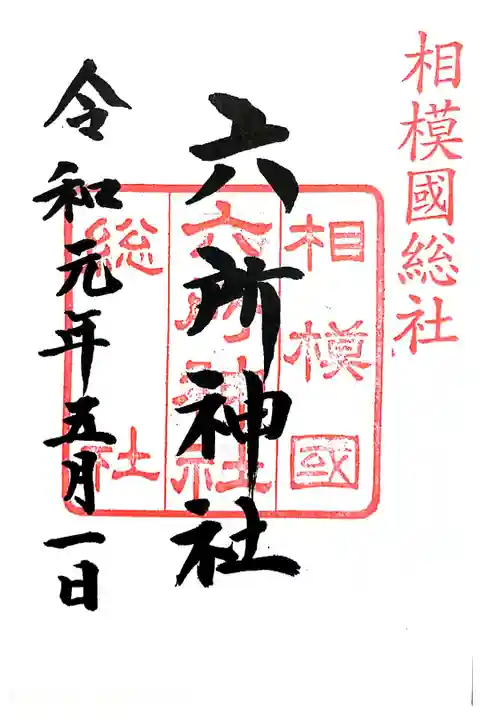 相模國総社
六所神社
令和元年五月一日
相模國
六所神社
総社